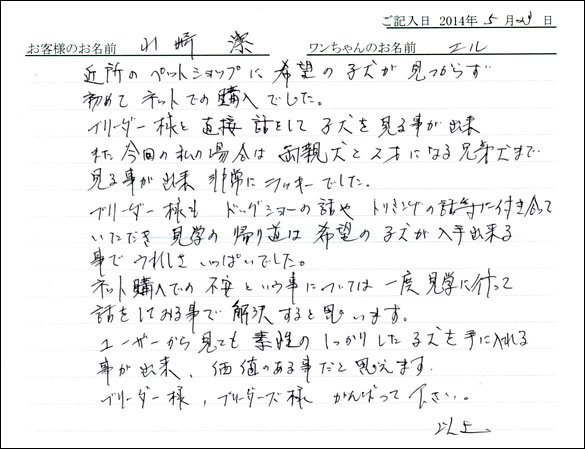 ご記入日 2014年 5 月 29 日
お客様のお名前 山崎 潔 ワンちゃんのお名前 エル
近所のペットショップに希望の子犬が見つからず
初めてネットでの購入でした。
ブリーダー様と直接話をして子犬を見る事が出来
また今回の私の場合は両親犬と2才になる兄弟犬まで
見る事が出来 非常にラッキーでした。
ブリーダー様も ドッグショーの話や トリミングの話等に付き合って
いただき 見学の帰り道は希望の子犬が入手出来る
事でうれしさいっぱいでした。
ネット購入での不安という事については一度見学に行って
話をしてみる事で解決すると思います。
ユーザーから見ても素性のしっかりした子犬を手に入れる
事が出来、価値のある事だと思えます。
ブリーダー様、ブリーダーズ様 がんばって下さい。
以上